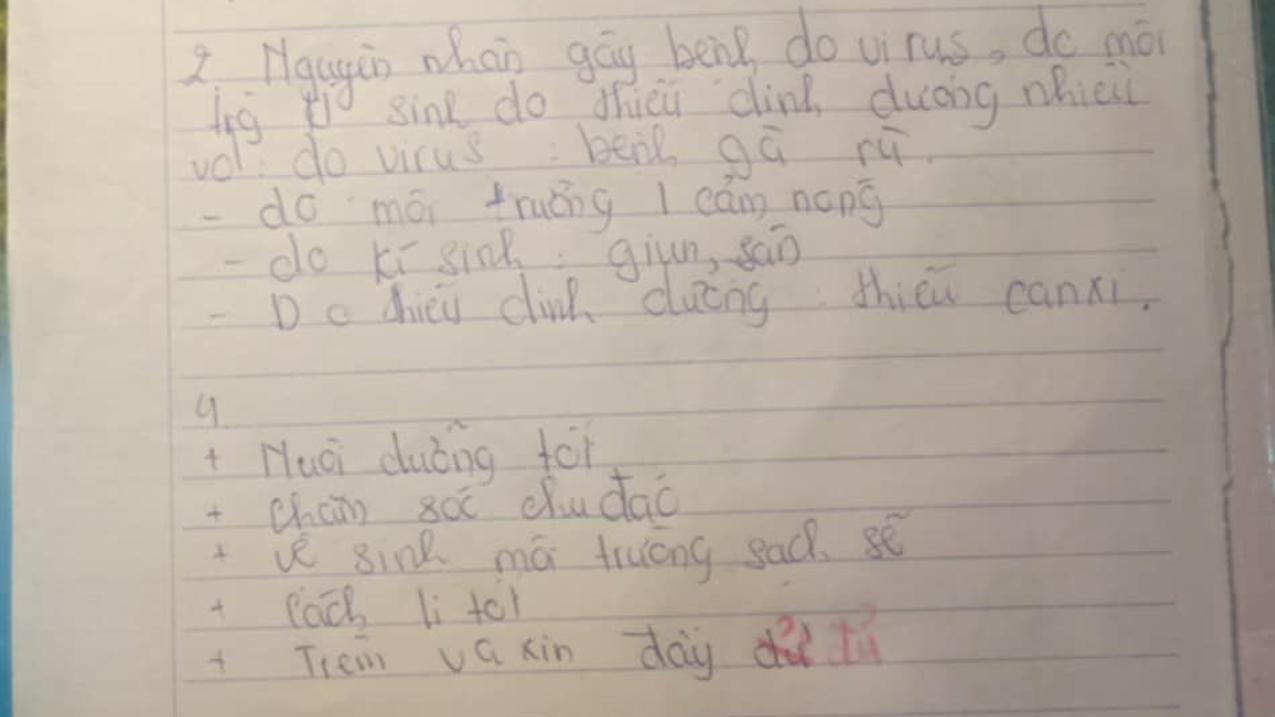 2 Nguyên nhân gây bệnh do virus, do môi
trg kí sinh do thiếu dinh dưỡng nhiều
vd: do virus : bệnh gà rù.
- do môi trường 1 cảm nang
- do kí sinh : giun, sán
- Do thiếu dinh dưỡng : thiếu canxi.
4
+ Nuôi dưỡng tốt
+ chăm sóc chu đáo
+ vệ sinh môi trường sạch sẽ
+ Cách li tốt
+ Tiêm va xin đầy đủ đủ